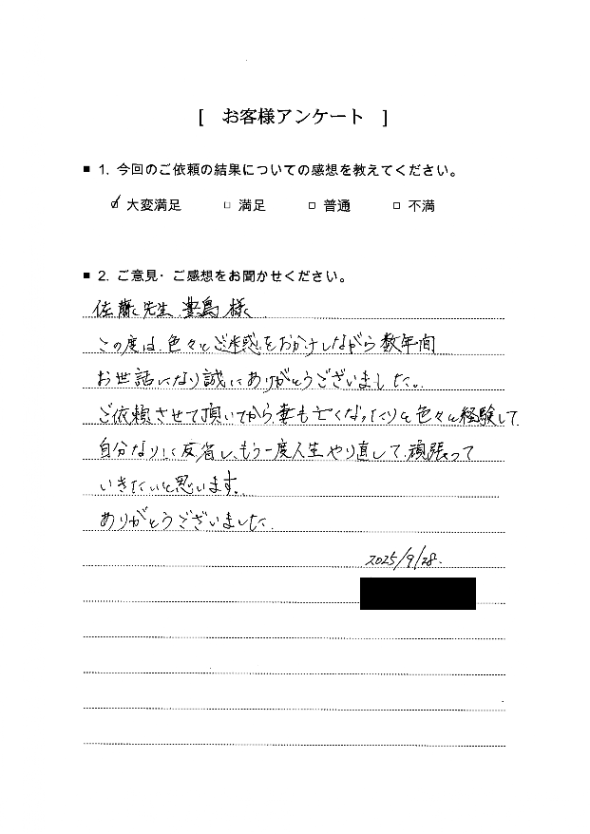 [ お客様アンケート ]
■ 1. 今回のご依頼の結果についての感想を教えてください。
☑ 大変満足 □ 満足 □ 普通 □ 不満
■ 2. ご意見・ご感想をお聞かせください。
佐藤先生、豊島様
この度は、色々とご迷惑をおかけしながら数年間
お世話になり誠にありがとうございました。
ご依頼させて頂いてから、妻も亡くなったりと色々と経験して、
自分なりに反省し、もう一度人生やり直して、頑張って
いきたいと思います。
ありがとうございました。
2025/9/28.